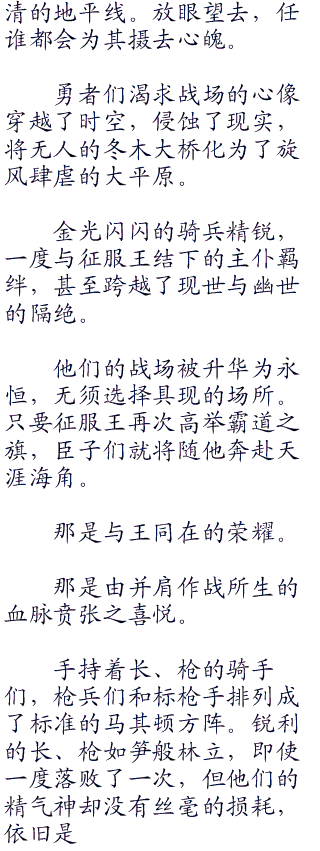 清的地平线。放眼望去，任
谁都会为其摄去心魄。
勇者们渴求战场的心像
穿越了时空，侵蚀了现实，
将无人的冬木大桥化为了旋
风肆虐的大平原。
金光闪闪的骑兵精锐，
一度与征服王结下的主仆羁
绊，甚至跨越了现世与幽世
的隔绝。
他们的战场被升华为永
恒，无须选择具现的场所。
只要征服王再次高举霸道之
旗，臣子们就将随他奔赴天
涯海角。
那是与王同在的荣耀。
那是由并肩作战所生的
血脉贲张之喜悦。
手持着长、枪的骑手
们，枪兵们和标枪手排列成
了标准的马其顿方阵。锐利
的长、枪如笋般林立，即使
一度落败了一次，但他们的
精气神却没有丝毫的损耗，
依旧是